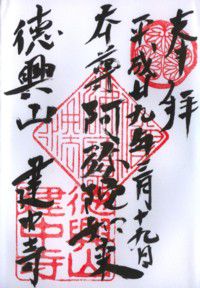 奉拝
平成廿九年二月十九日
本尊阿弥陀如来
徳興山 建中寺
徳興山
建中寺